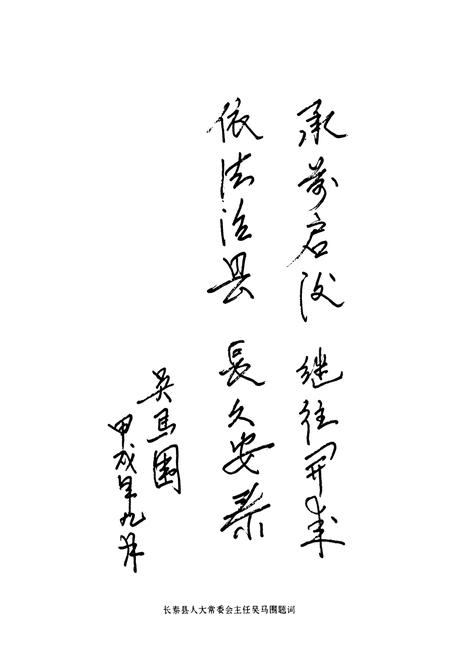 承前启后 继往开来
依法治县 长久安泰
吴马围
甲戌年九月
长泰县人大常委会主任吴马围题词